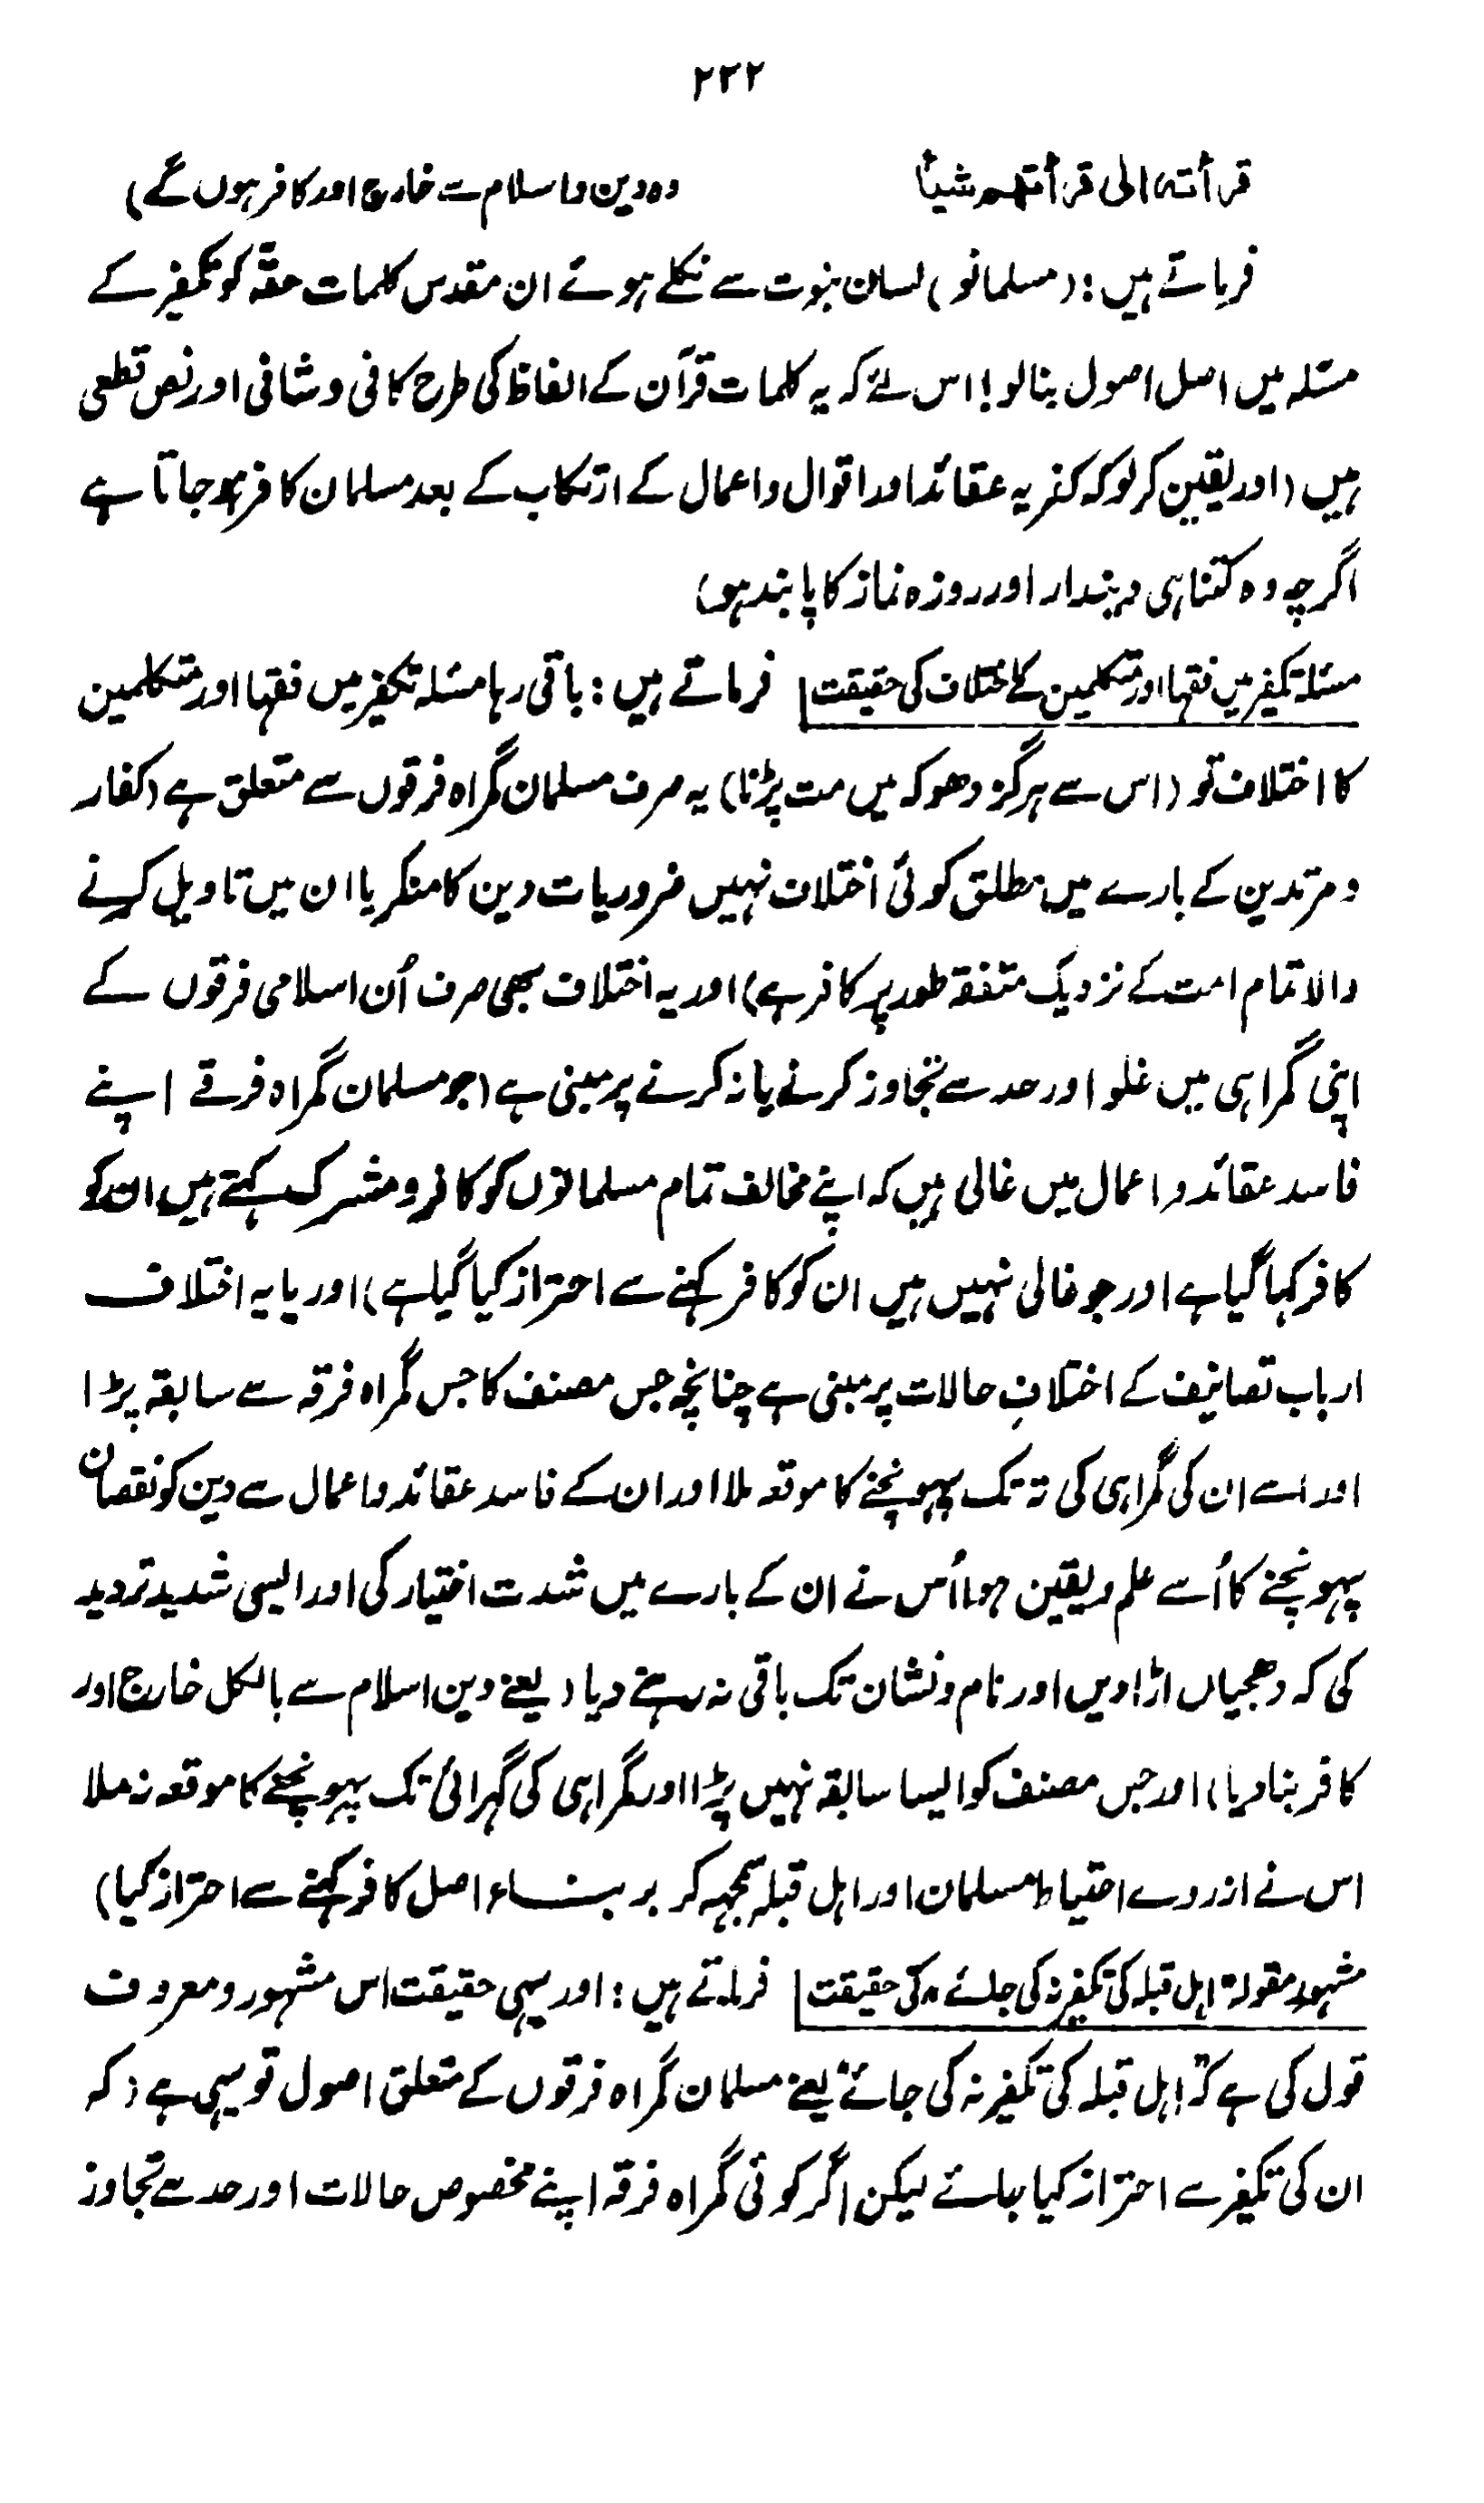 ۲۳۲
قرأتہ الی قرأتھم شیئاً وہ دین واسلام سے خارج اور کافر ہوں گے)
فرماتے ہیں: (مسلمانو) لسان نبوت سے نکلے ہوئے ان مقدس کلمات حقہ کو تکفیر کے
مسئلہ میں اصل اصول بنالو! اس لئے کہ یہ کلمات قرآن کے الفاظ کی طرح کافی وشافی اور نص قطعی
ہیں (اور یقین کرلو کہ کفریہ عقائد اور اقوال واعمال کے ارتکاب کے بعد مسلمان کافر ہوجاتا ہے
اگرچہ وہ کتنا ہی دیندار اور روزہ نماز کا پابند ہو)
مسئلہ تکفیر میں فقہا اور متکلمین کے اختلاف کی حقیقت فرماتے ہیں: باقی رہا مسئلہ تکفیر میں فقہا اور متکلمین
کا اختلاف تو (اس سے ہرگز دھوکہ میں مت پڑنا) یہ صرف مسلمان گمراہ فرقوں سے متعلق ہے (کفار
ومرتدین کے بارے میں مطلق کوئی اختلاف نہیں ضروریات دین کا منکر یا ان میں تاویل کرنے
والا تمام امت کے نزدیک متفقہ طور پر کافر ہے) اور یہ اختلاف بھی صرف اُن اسلامی فرقوں کے
اپنی گمراہی میں غلو اور حد سے تجاوز کرنے یا نہ کرنے پر مبنی ہے (جو مسلمان گمراہ فرقے اپنے
فاسد عقائد واعمال میں غالی ہیں کہ اپنے مخالف تمام مسلمانوں کو کافر ومشرک کہتے ہیں ان کو
کافر کہا گیا ہے اور جو غالی نہیں ہیں ان کو کافر کہنے سے احتراز کیا گیا ہے) اور یا یہ اختلاف
ارباب تصانیف کے اختلافِ حالات پر مبنی ہے چنانچہ جس مصنف کا جس گمراہ فرقہ سے سابقہ پڑا
اور اسے ان کی گمراہی کی تہ تک پہونچنے کا موقعہ ملا اور ان کے فاسد عقائد واعمال سے دین کو نقصان
پہونچنے کا اُسے علم ویقین ہوا اُس نے ان کے بارے میں شدت اختیار کی اور ایسی شدید تردید
کی کہ دھجیاں اڑا دیں اور نام ونشان تک باقی نہ رہنے دیا (یعنے دین اسلام سے بالکل خارج اور
کافر بنا دیا) اور جس مصنف کو ایسا سابقہ نہیں پڑا اور گمراہی کی گہرائی تک پہونچنے کا موقعہ نہ ملا
اس نے ازروے احتیاط مسلمان اور اہل قبلہ سمجھ کر بربناء اصل کافر کہنے سے احتراز کیا)
مشہور مقولہ "اہل قبلہ کی تکفیر نہ کی جائے" کی حقیقت فرماتے ہیں: اور یہی حقیقت اس مشہور ومعروف
قول کی ہے کہ "اہل قبلہ کی تکفیر نہ کی جائے" یعنے مسلمان گمراہ فرقوں کے متعلق اصول تو یہی ہے (کہ
ان کی تکفیر سے احتراز کیا جائے لیکن اگر کوئی گمراہ فرقہ اپنے مخصوص حالات اور حد سے تجاوز